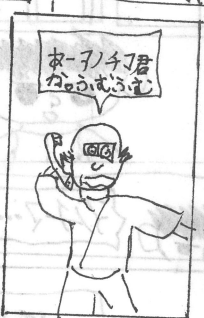 あーヲノチコ君
か。ふむふむ